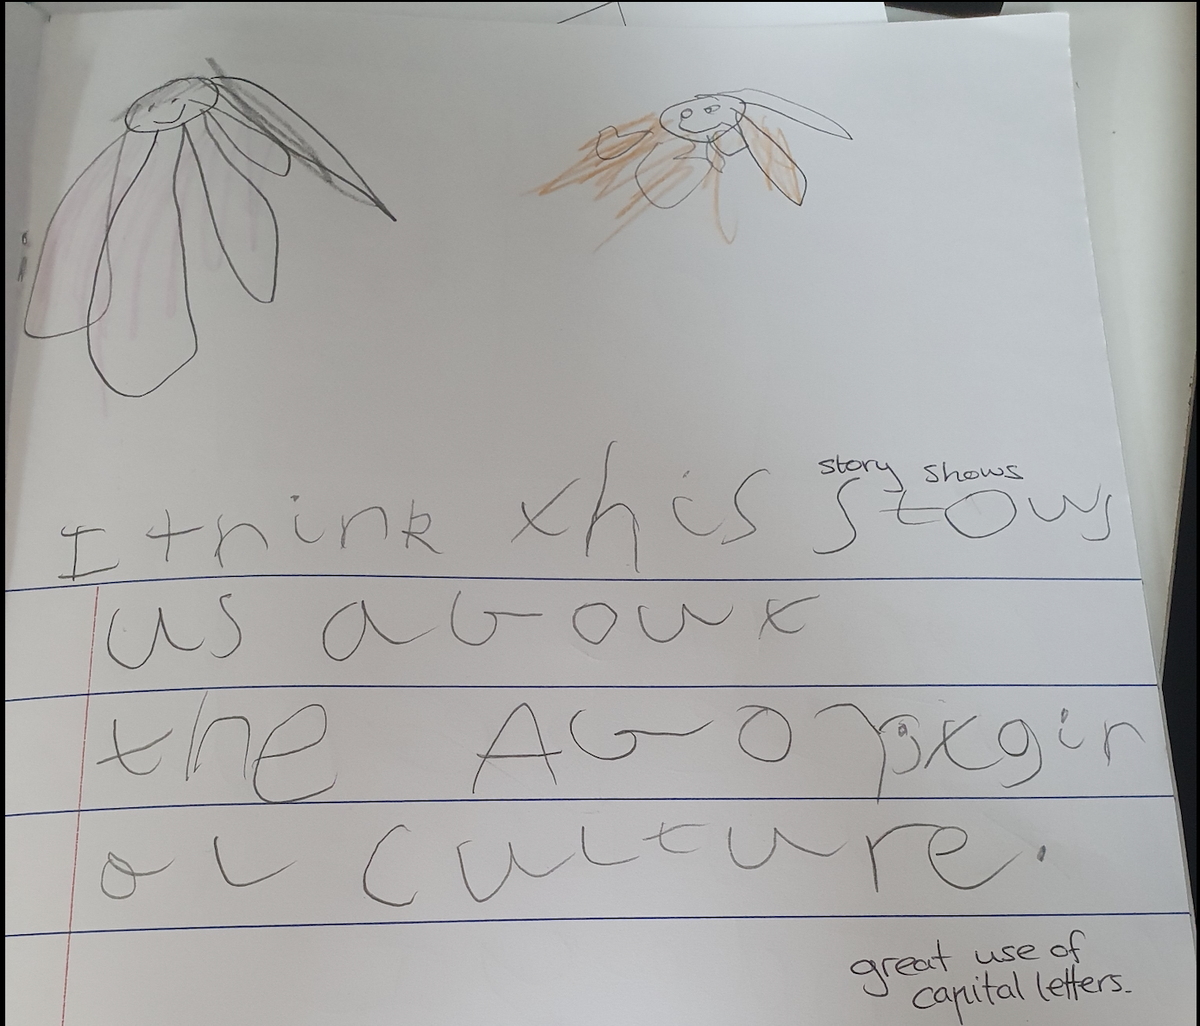 story shows
I think this stows
us about
the Aborigin
al culture.
great use of
capital letters.